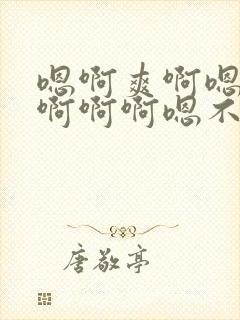 嗯啊爽啊嗯
啊啊啊嗯不
唐敬亭